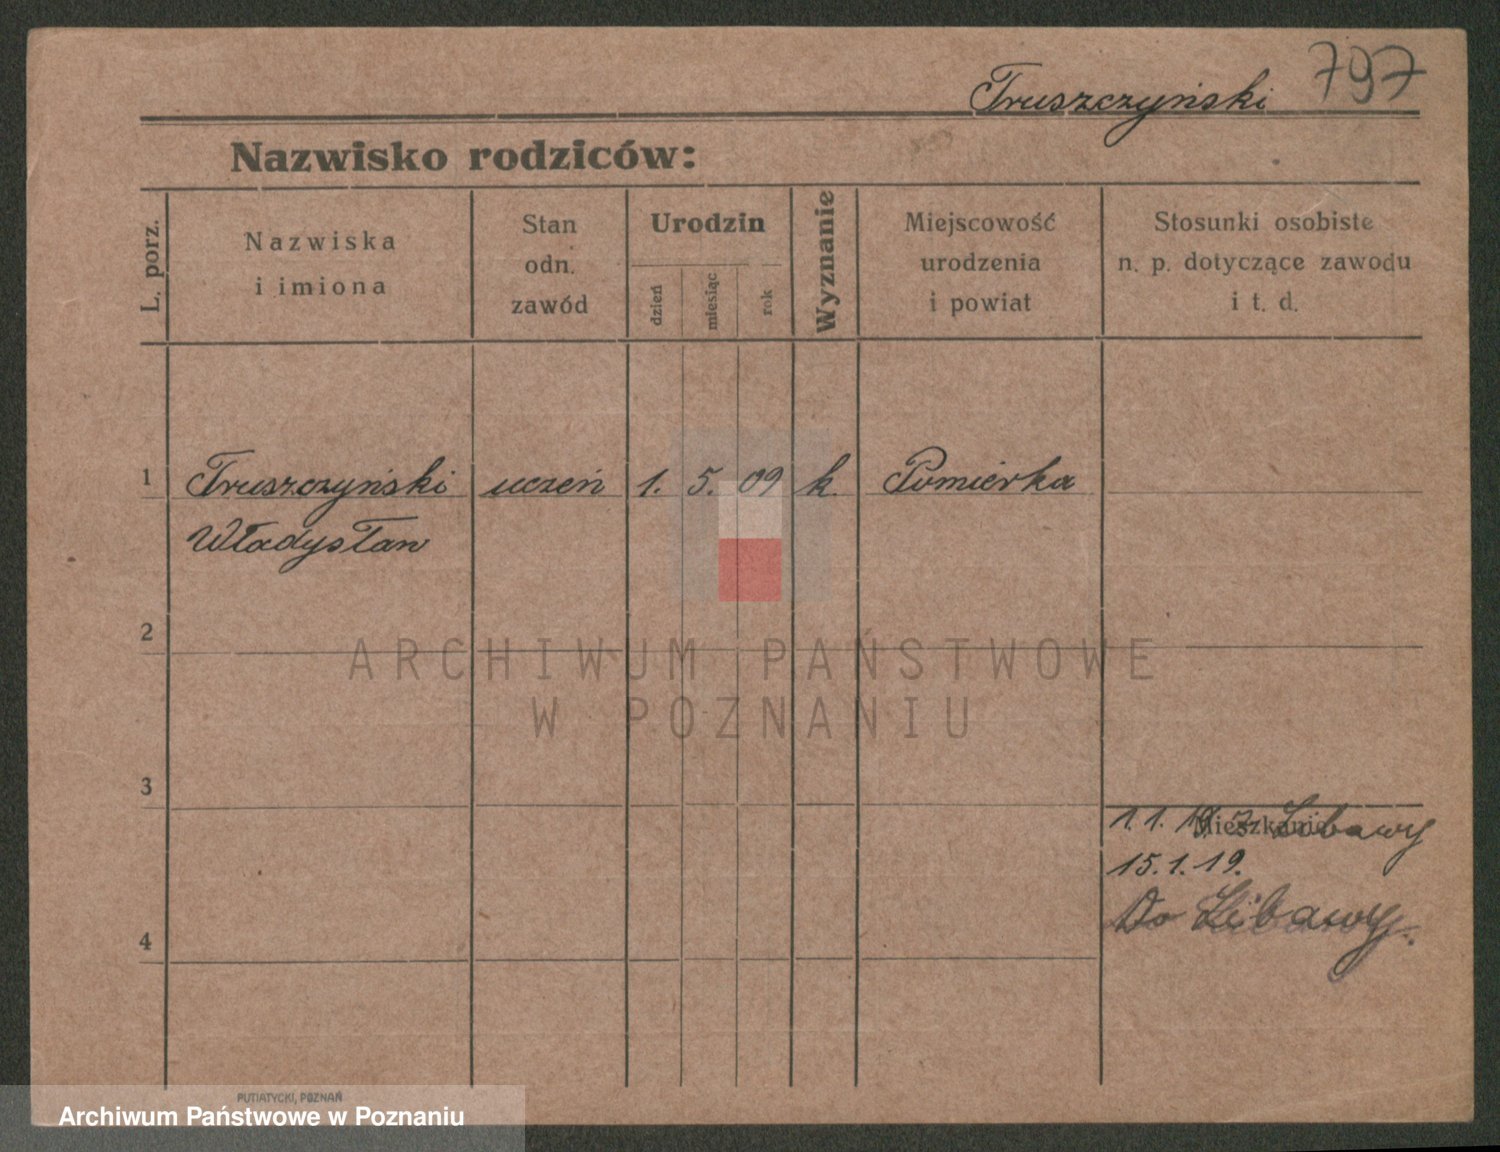 797
Truszczyński
Nazwisko rodziców:
L. porz.
Nazwiska
i imiona
Stan
odn.
zawód
Urodzin
dzień
miesiąc
rok
Wyznanie
Miejscowość
urodzenia
i powiat
Stosunki osobiste
n. p. dotyczące zawodu
i t. d.
1 Truszczyński uczeń 1. 5. 09 k. Pomierka
Władysław
2
ARCHIWUM PAŃSTWOWE
W POZNANIU
3
Mieszkanie
1.1. Libawy
15.1.19.
Do Libawy.
4
PUTIATYCKI, POZNAŃ
Archiwum Państwowe w Poznaniu